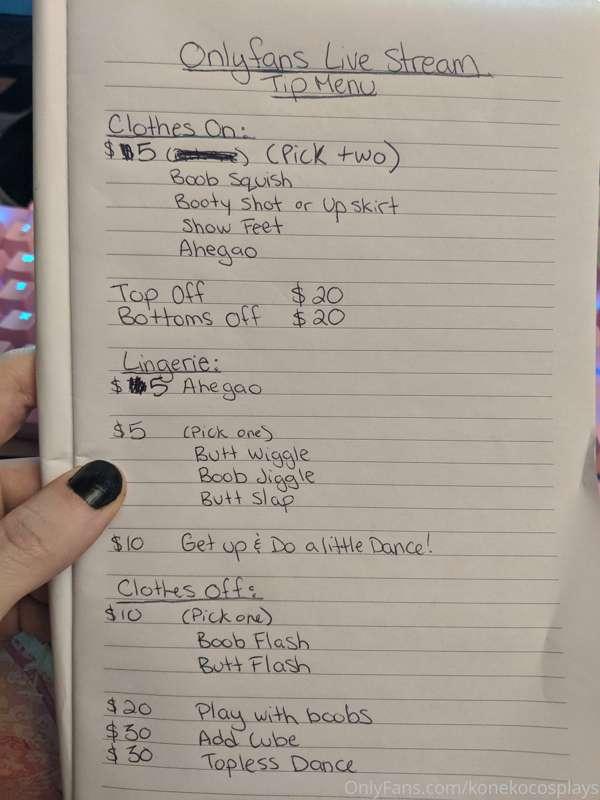 Onlyfans Live Stream
Tip Menu
Clothes On:
$5 (Pick two)
Boob Squish
Booty Shot or Up skirt
Show Feet
Ahegao
Top Off $20
Bottoms Off $20
Lingerie:
$5 Ahegao
$5 (Pick one)
Butt Wiggle
Boob Jiggle
Butt Slap
$10 Get up & Do a little Dance!
Clothes Off:
$10 (Pick one)
Boob Flash
Butt Flash
$20 Play with boobs
$30 Add Lube
$30 Topless Dance
OnlyFans.com/konekocosplays